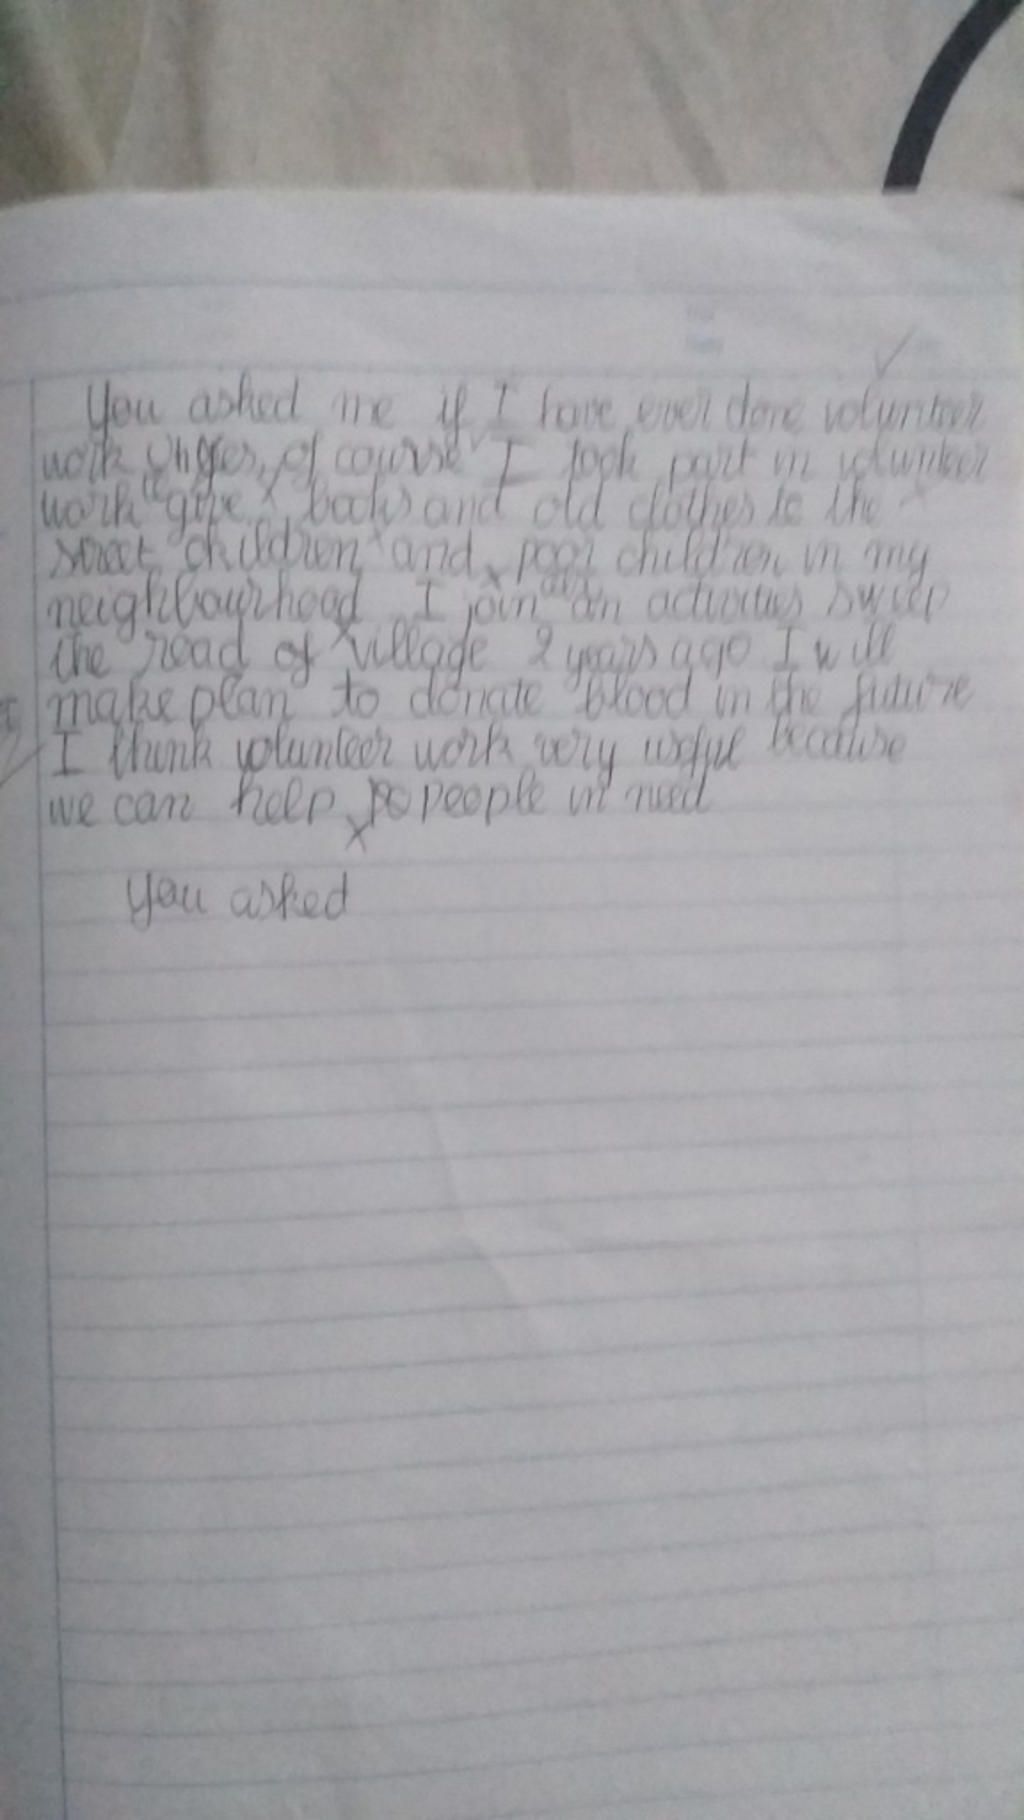 You asked me if I have ever done volunteer
work yes, of course I took part in volunteer
work "give books and old clothes to the
street children and poor children in my
neighbourhood I join an activities sweep
the road of village 2 years ago I will
make plan to donate blood in the future
I think volunteer work very useful because
we can help people in need
You asked